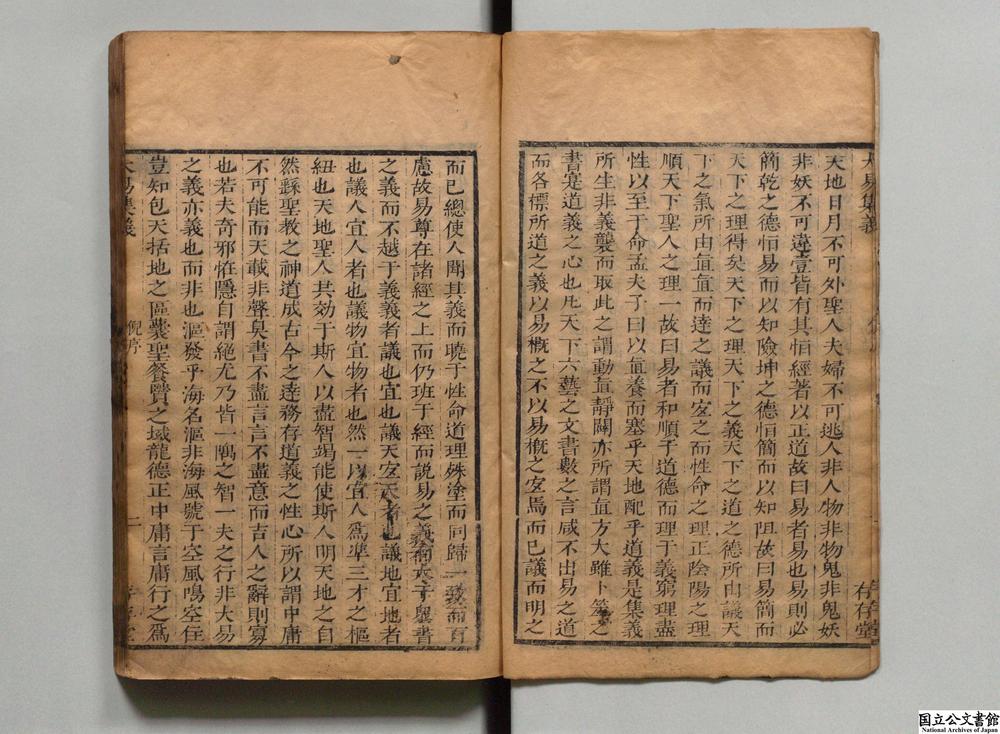 大易集義
存存堂
天地日月不可外聖人夫婦不可逃人非人物非物鬼非鬼妖
非妖不可違壹皆有其恒經著以正道故曰易者易也易則必
簡乾之德恒易而以知險坤之德恒簡而以知阻故曰易簡而
天下之理得矣天下之理天下之義天下之道之德所由議天
下之氣所由宜宜而達之議而安之而性命之理正陰陽之理
順天下聖人之理一故曰易者和順于道德而理于義窮理盡
性以至于命孟夫子曰以直養而塞乎天地配乎道義是集義
所生非義襲而取此之謂動直靜闢亦所謂直方大雖卜筮之
書寔道義之心也凡天下六藝之文書數之言咸不出易之道
而各標所道之義以易概之不以易概之安焉而已議而明之
而已總使人聞其義而曉于性命道理殊塗而同歸一致而百
慮故易尊在諸經之上而仍班于經而說易之義者
之義而不越于義義者議也宜也議天宜天者也議地宜地者
也議人宜人者也議物宜物者也然一以宜人爲準三才之樞
紐也天地聖人共効于斯人以盡智竭能使斯人明天地之自
然繇聖教之神道成古今之達務存道義之性心所以謂中庸
不可能而天載非聲臭書不盡言言不盡意而吉人之辭則寡
也若夫奇邪恠隱自謂絕尤乃皆一隅之智一夫之行非大易
之義亦義也而非也漚發乎海名漚非海風號于空風鳴空在
豈知包天括地之區囊聖餐賢之域龍德正中庸言庸行之爲
大易集義
倪序
二
存存堂
国立公文書館
National Archives of Japan